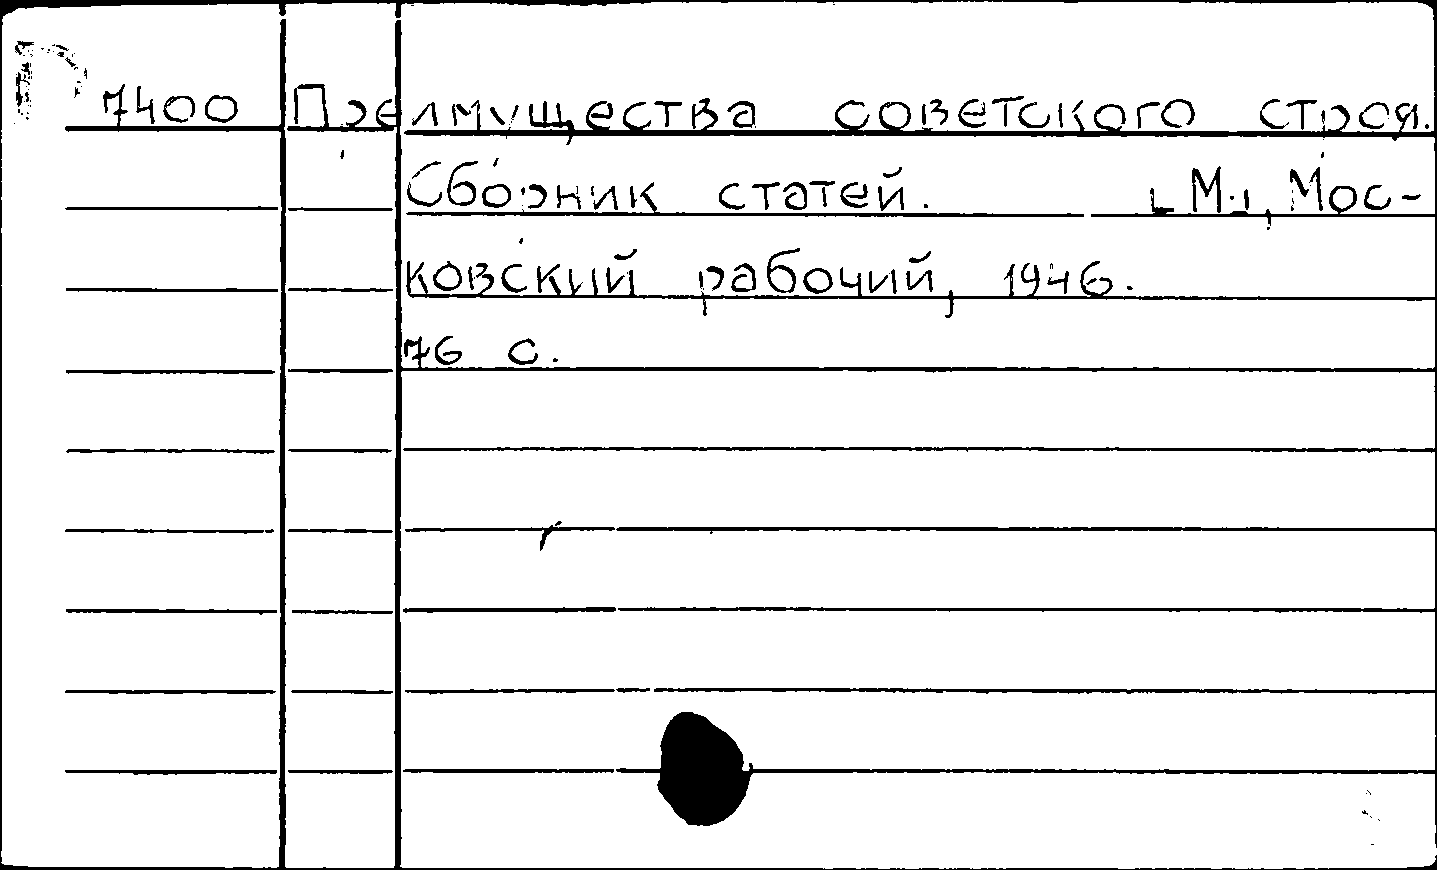 П
7400 Преимущества советского строя.
Сборник статей. [М.], Мос-
ковский рабочий, 1946.
76 с.